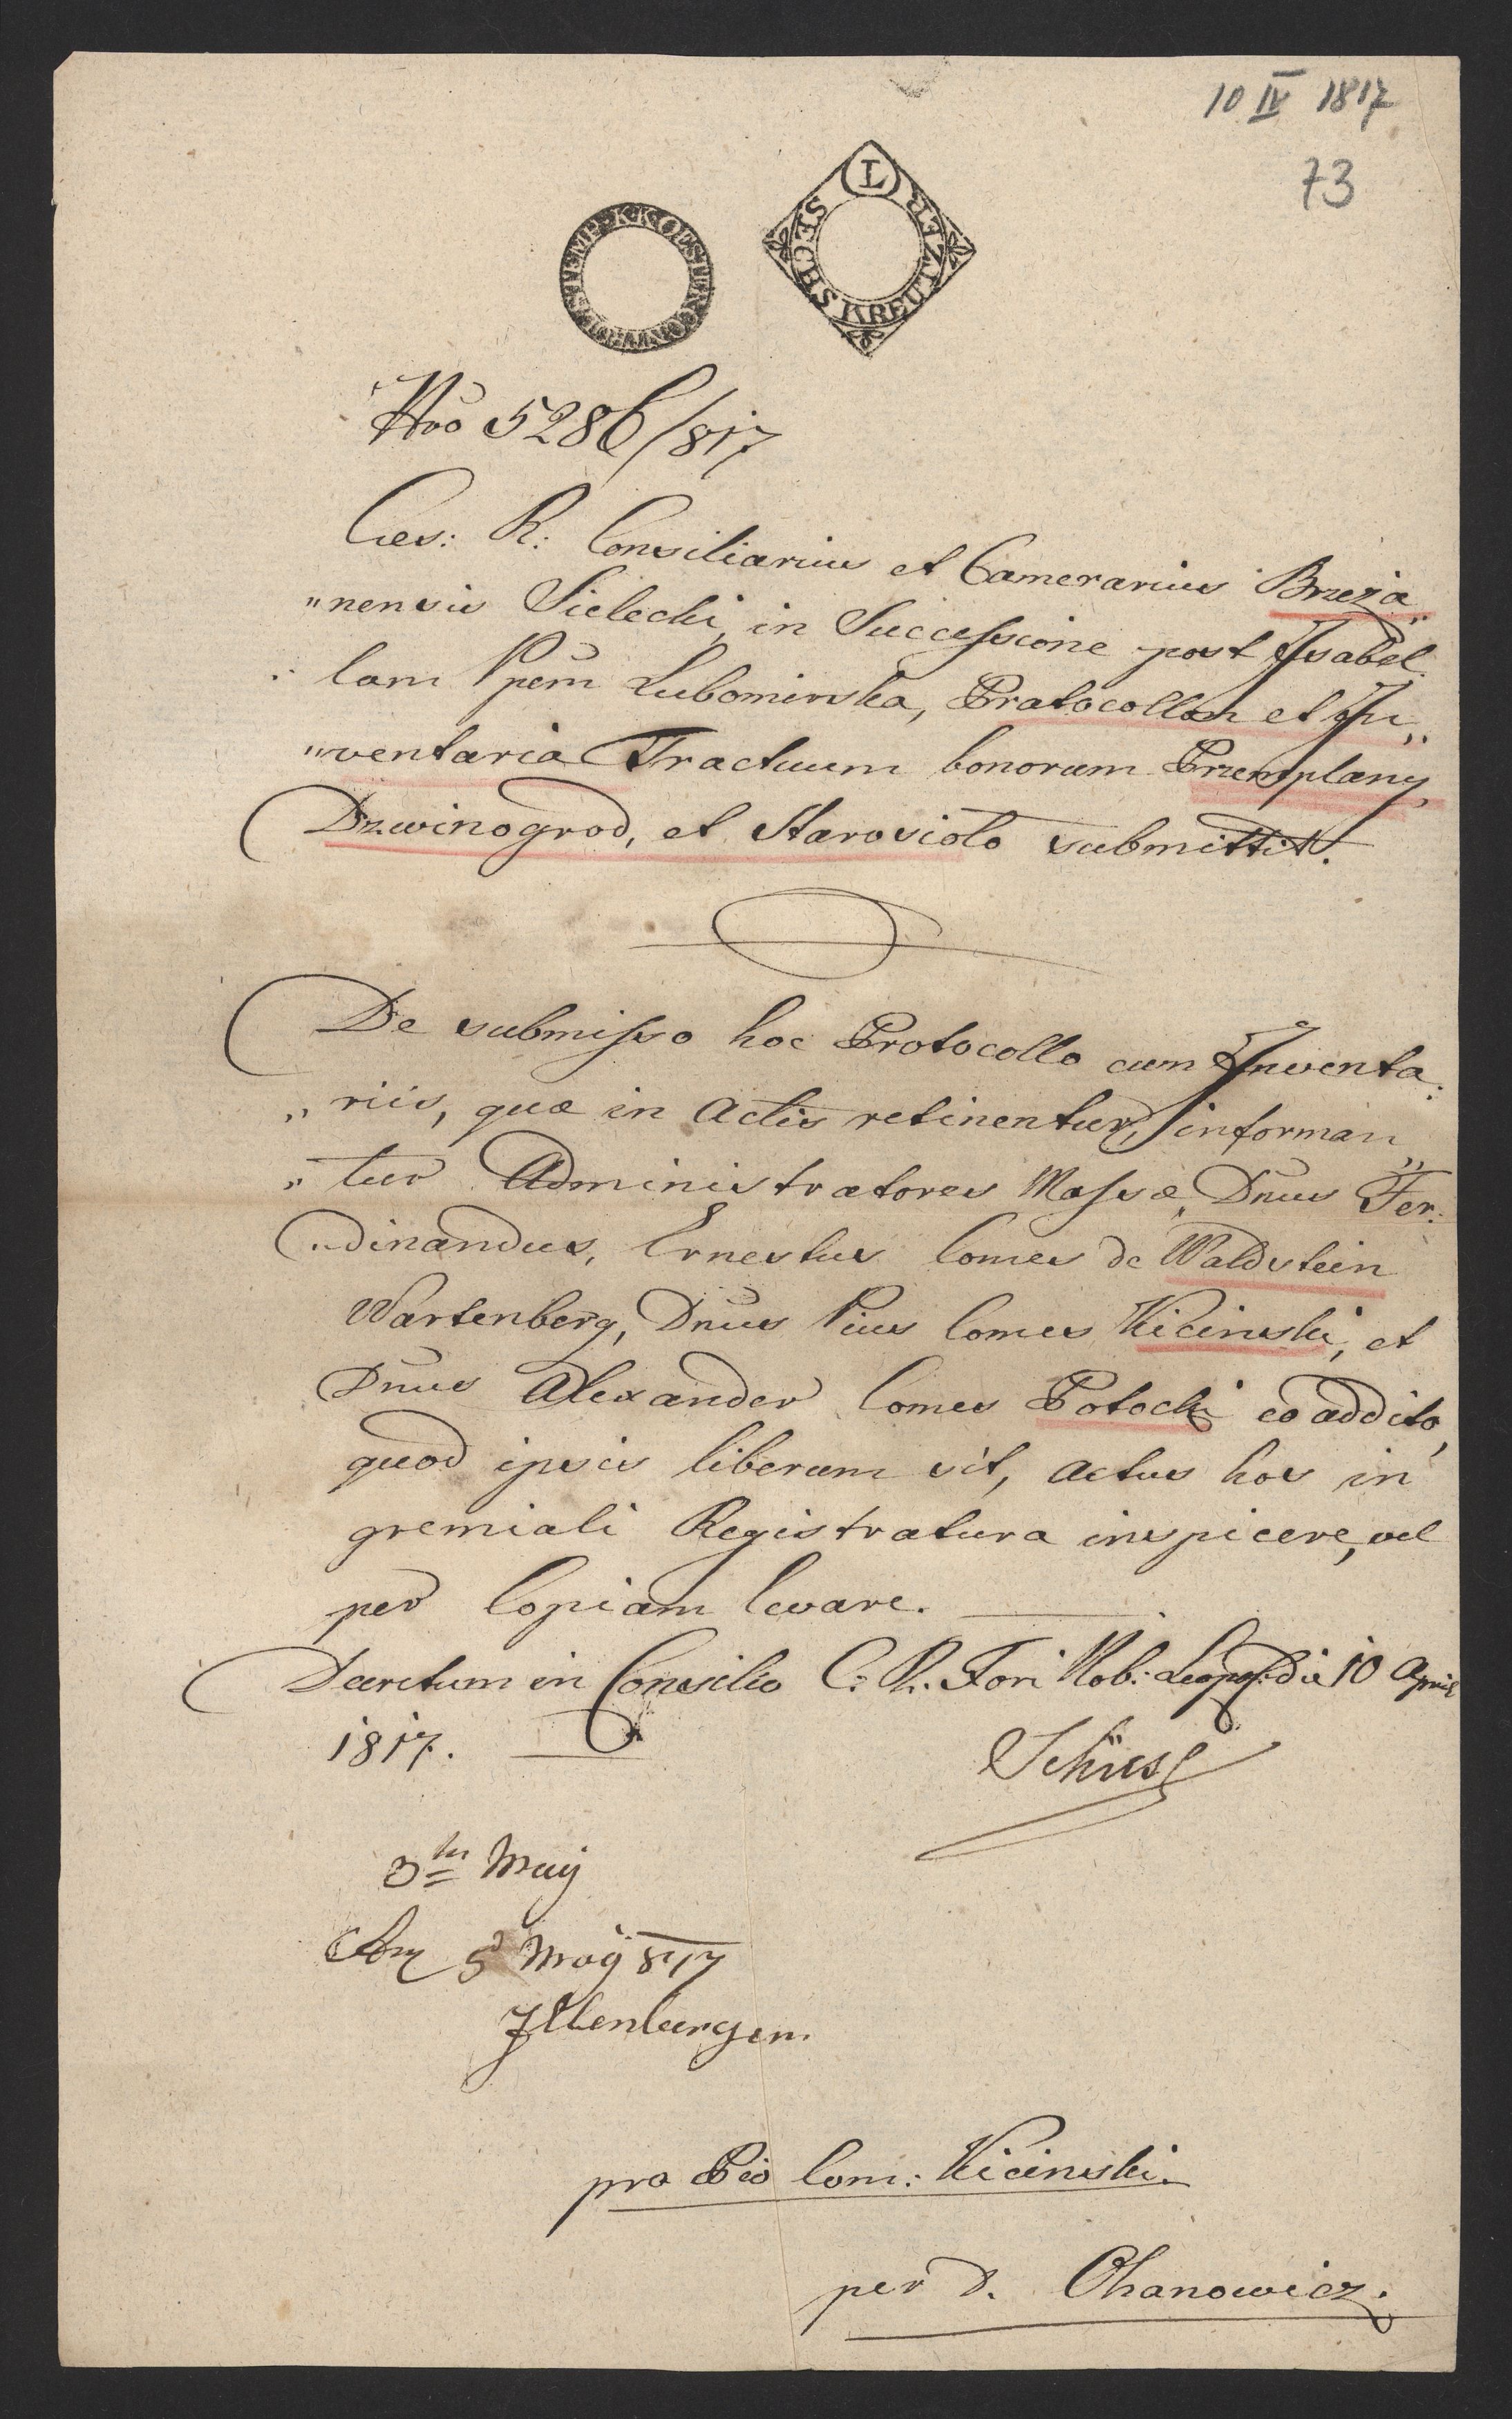 10 IV 1817
73
K.K. OESTERR. COMMERZ. STEMP.
L
SECHS KREUTZER
Nro 5286/817
Cæs: R: Consiliarius et Camerarius Brzeża„
„nensis Sielecki, in Successione post Isabel
: lam Ppem Lubomirska, Protocollon et In„
„ventaria Tractuum bonorum Przemyslany,
Dzwinogrod, et Starosiolo submittit.
De submisso hoc Protocollo cum Inventa:
„ riis, quæ in Actis retinentur, informan„
„ tur Administratores Massæ, Dnus Fer:
„dinandus, Ernestus Comes de Waldstein
Wartenberg, Dnus Pius Comes Kicinski, et
Dnus Alexander Comes Potocki eo addito,
quod ipsis liberum sit, actus hos in
gremiali Registratura inspicere, vel
per Copiam levare.
Decretum in Consilio C. R. Fori Nob: Leopol: die 10 April
1817.
3ten May
5 May 817
pro Pio Com: Kicinski.
per D. Ohanowicz.